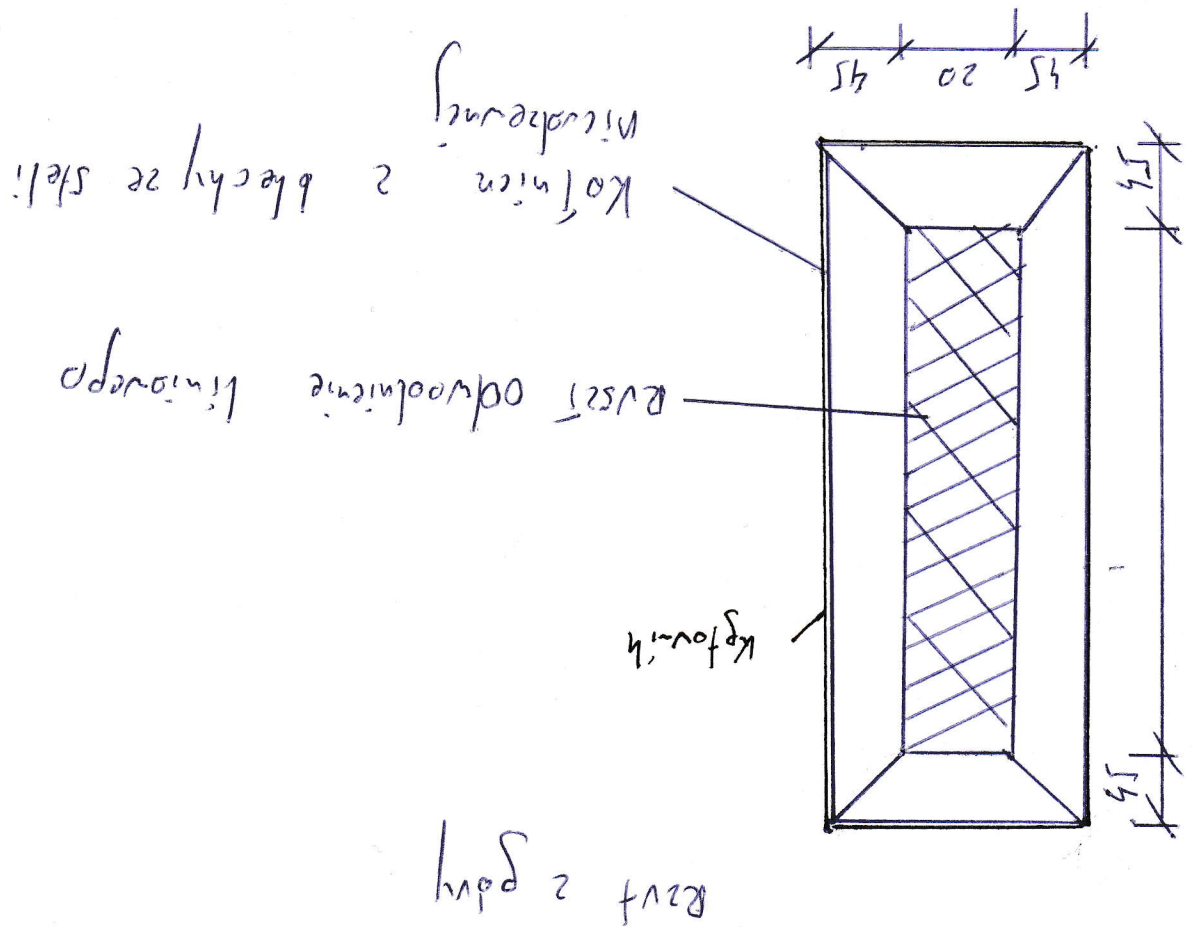 Rzut z góry
Kątownik
Ruszt odwodnienie liniowego
Kołnierz z blachy ze stali
nierdzewnej
45
45
45
20
45